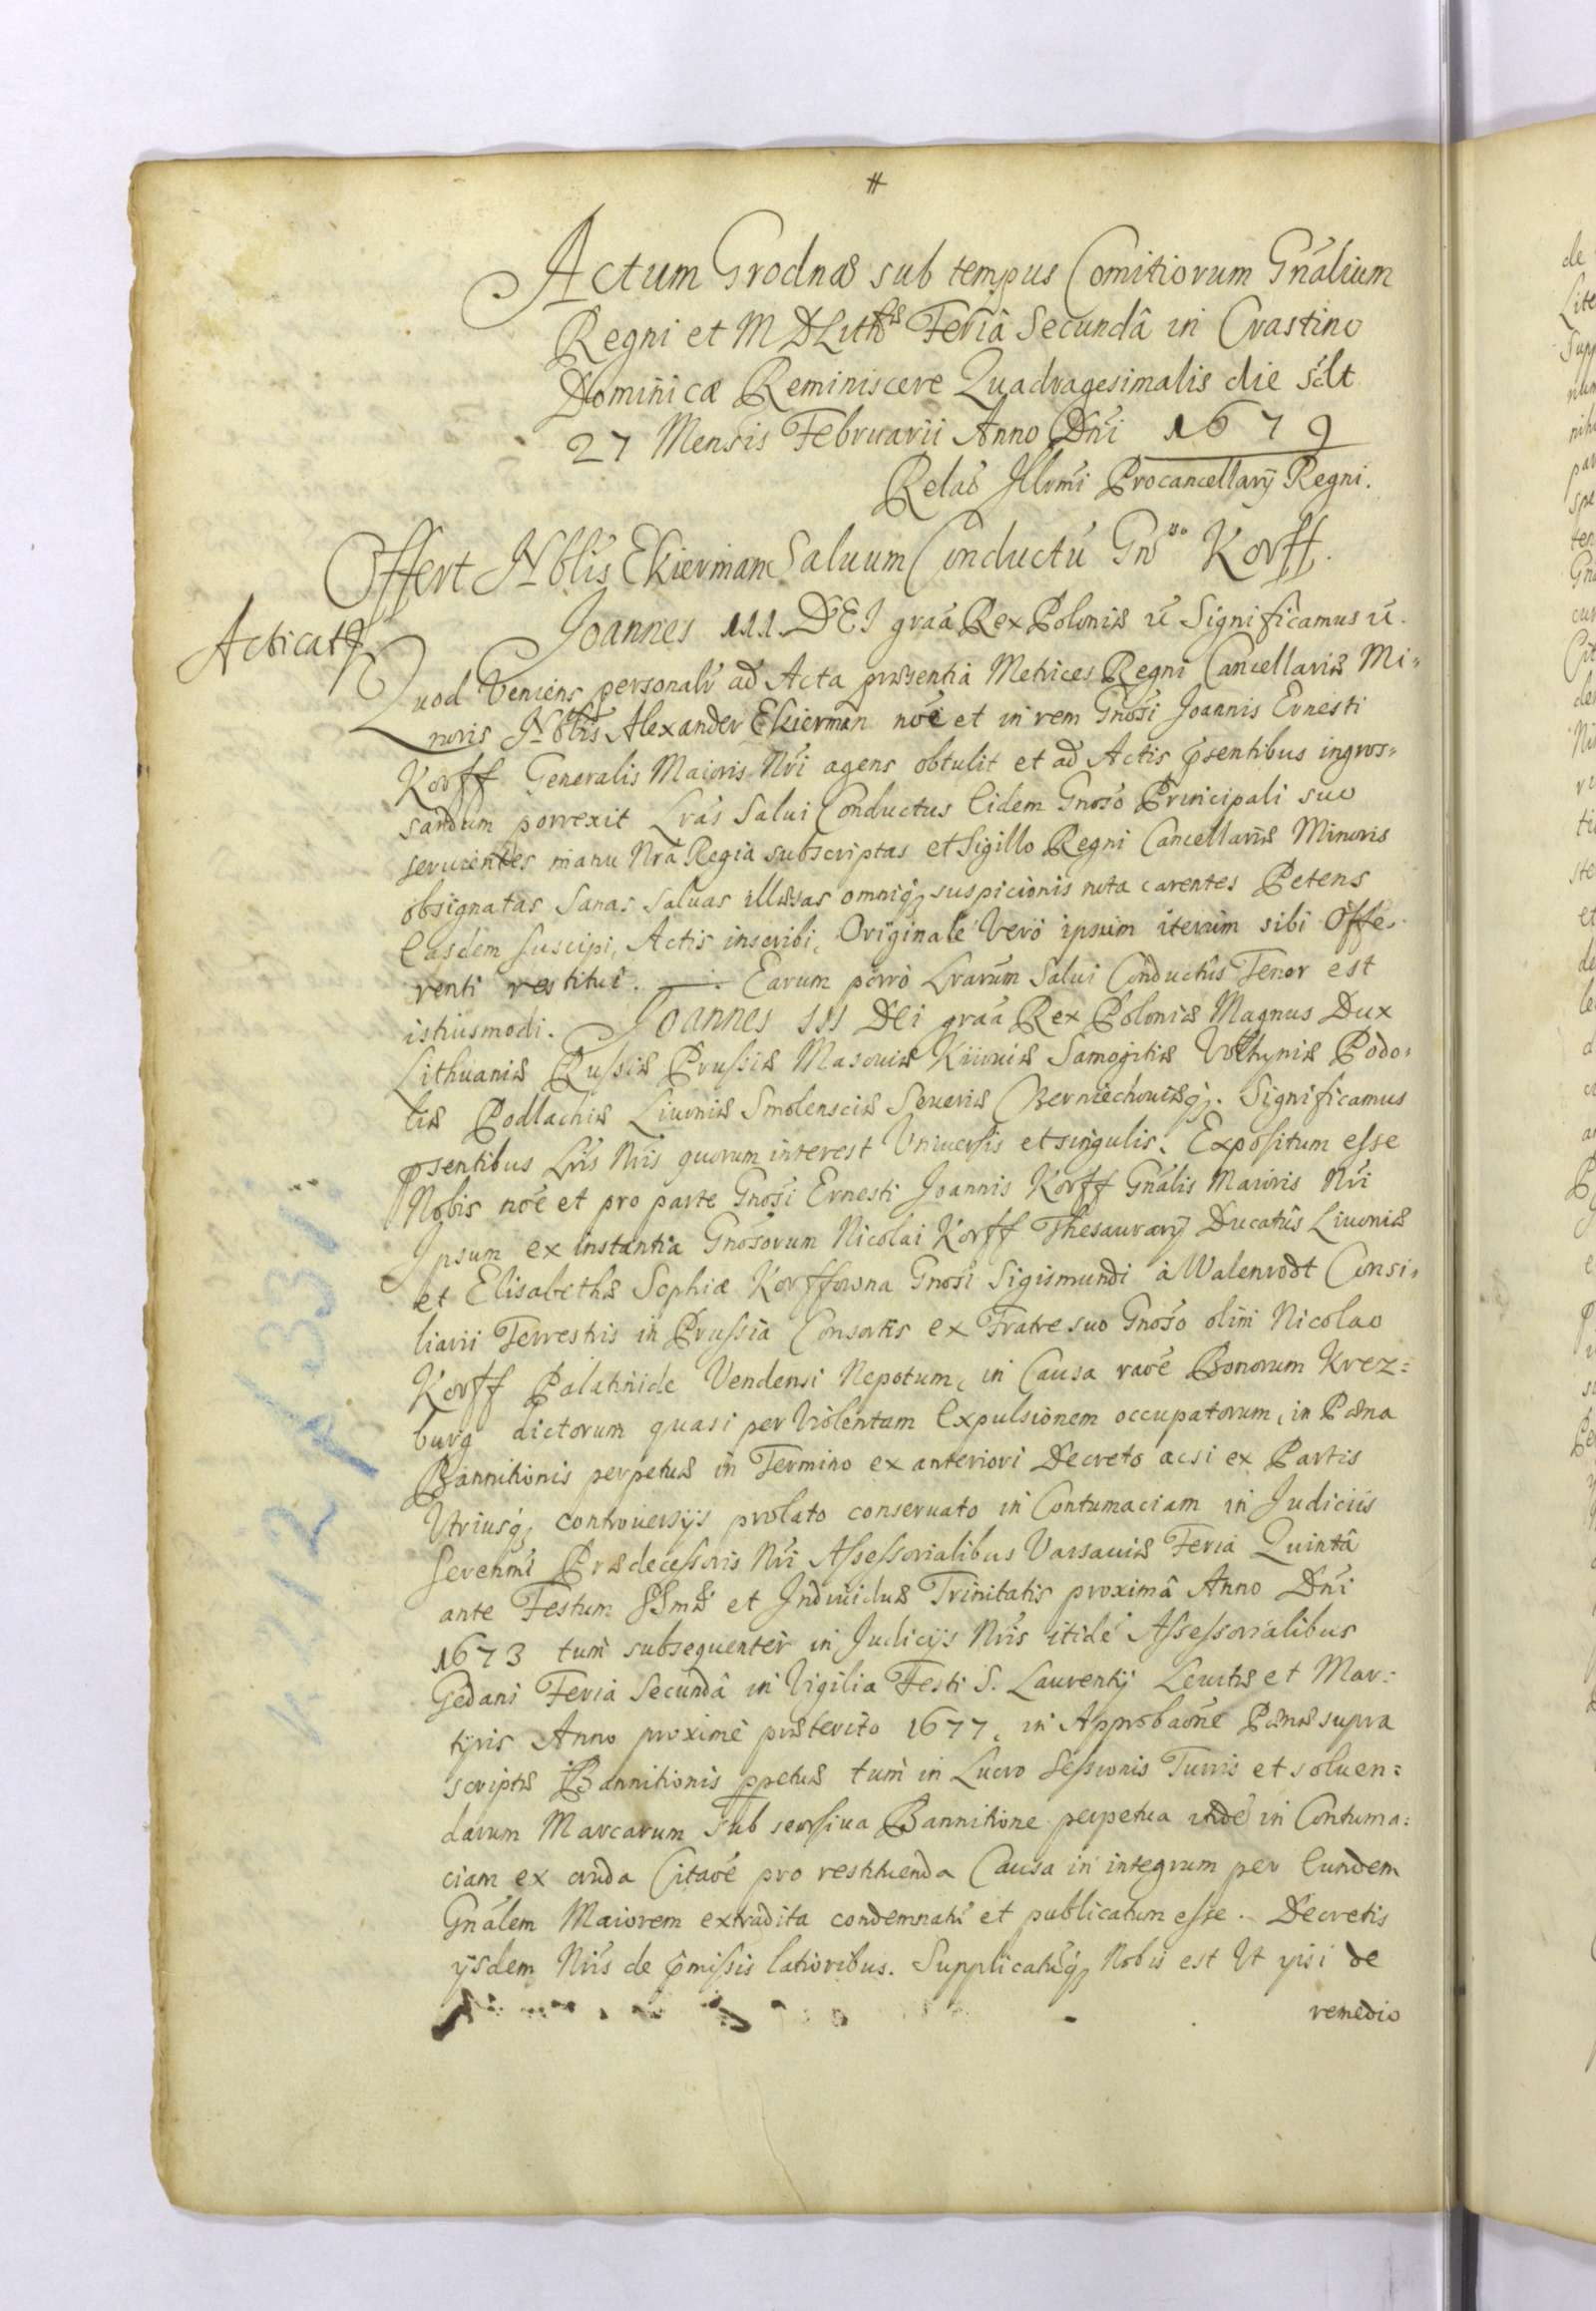 #
Actum Grodnæ sub tempus Comitiorum Gn̄alium
Regni et M D Lith Feriâ Secundâ in Crastino
Dominicæ Reminiscere Quadragesimalis die sclt
27 Mensis Februarii Anno Dn̄i 1679
Relaō Jllvmi Procancellarij Regni.
Offert Nblis Ekierman Saluum Conductū Gn̄ Korff.
Acticat
Joannes III DEI graā Rex Poloniæ Significamus
Quod Veniens personalr ad Acta præsentia Metrices Regni Cancellariæ Mi=
noris Nblis Alexander Ekierman nōe et in rem Gnōsi Joannis Ernesti
Korff Generalis Maioris Nr̄i agens obtulit et ad Actis p̄sentibus ingros=
sandum porrexit Lrās Salui Conductus Eidem Gnoso Principali suo
seruientes manu Nrā Regiâ subscriptas et Sigillo Regni Cancellariæ Minoris
obsignatas Sanas Saluas illæsas omniq, suspicionis nota carentes Petens
Easdem suscipi, Actis inscribi, Originale Vero ipsum iterum sibi Offe-
renti restitui. Earum porro Lrarum Salui Conductûs Tenor est
istiusmodi. Joannes III Dei graā Rex Poloniæ Magnus Dux
Lithuaniæ Russiæ Prussiæ Masouiæ Kiiouiæ Samogitiæ Volhyniæ Podo-
liæ Podlachiæ Liuoniæ Smolensciæ Seueriæ Czerniechouiæq. Significamus
p̄sentibus Lrīs Nrīs quorum interest Vniuersis et singulis. Expositum esse
Nobis nōe et pro parte Gnōsi Ernesti Joannis Korff Gnālis Maioris Nrī
Ipsum ex instantia Gnōsorum Nicolai Korff Thesaurarij Ducatûs Liuoniæ
et Elisabethæ Sophiæ Korffowna Gnōsi Sigismundi à Walenrodt Consi-
liarii Terrestris in Prussia Consortis ex Fratre suo Gnōso olim Nicolao
Korff Palatinide Vendensi Nepotum, in Causa raōe Bonorum Krez=
burg dictorum quasi per Violentam Expulsionem occupatorum, in Pæna
Bannitionis perpetuæ in Termino ex anteriori Decreto acsi ex Partis
Vtriusq, controuersijs prolato conseruato in Contumaciam in Judiciis
Serenmi Prædecessoris Nri Assessorialibus Varsauiæ Feria Quintâ
ante Festum SSmæ et Indiuiduæ Trinitatis proximâ Anno Dn̄i
1673 tum subsequenter in Judicijs Nrīs itidē Assessorialibus
Gedani Feria Secundâ in Vigilia Festi S. Laurentij Leuitæ et Mar=
tyris Anno proximè præterito 1677, in Approbaōne Pænæ supra
scriptæ Bannitionis ppetuæ tum in Lucro Sessionis Turris et soluen=
darum Marcarum sub seorsiua Bannitione perpetua in Contuma=
ciam ex Citaōe pro restituenda Causa in integrum per Eundem
Gnālem Maiorem extradita condemnatū et publicatum esse. Decretis
ijsdem Nrīs de p̄missis latioribus. Supplicatūq, Nobis est Vt ipsi de
remedio